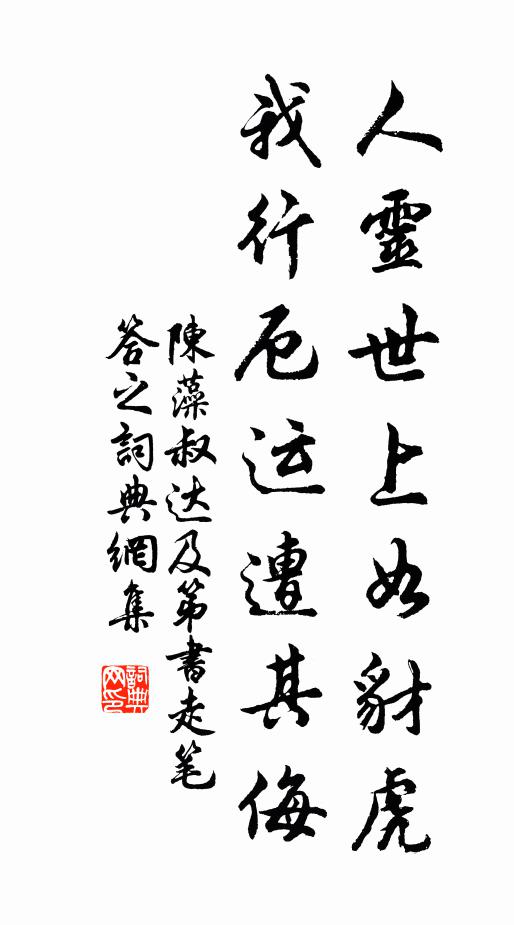 人靈世上如豺虎
我行厄运遭其侮
陳藻叔达及第書走笔
答之詞典網集
詞典网印